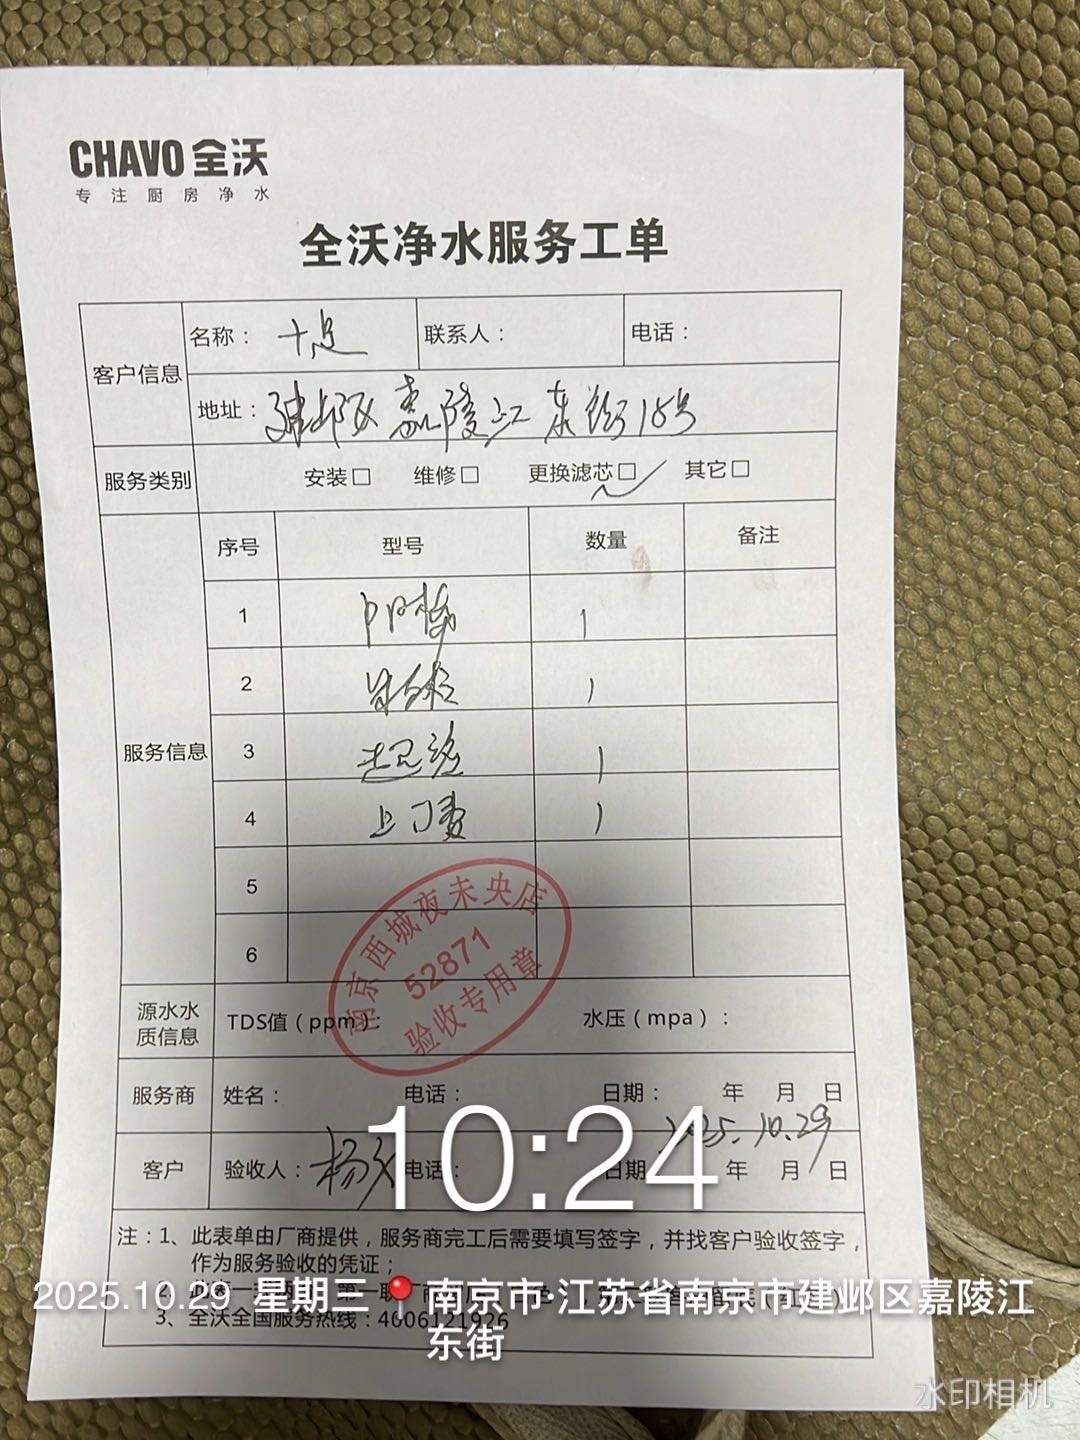 CHAVO 全沃
专注厨房净水
全沃净水服务工单
客户信息
名称： 十足
联系人：
电话：
地址： 建邺区嘉陵江东街18号
服务类别
安装□ 维修□ 更换滤芯□ 其它□
服务信息
序号 型号 数量 备注
1 1
2 1
3 1
4 上门费 1
5
6
南京西城夜未央店
52871
验收专用章
源水水质信息
TDS值（ppm）： 水压（mpa）：
服务商 姓名： 电话： 日期： 年 月 日
2025.10.29
客户 验收人： 杨 电话： 日期 年 月 日
10:24
注：1、此表单由厂商提供，服务商完工后需要填写签字，并找客户验收签字，
作为服务验收的凭证；
3、全沃全国服务热线：4006121926
2025.10.29 星期三 南京市·江苏省南京市建邺区嘉陵江
东街
水印相机